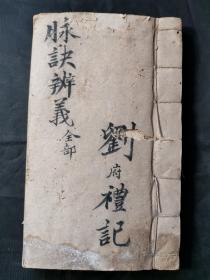 脉訣辨義全部
劉府禮記